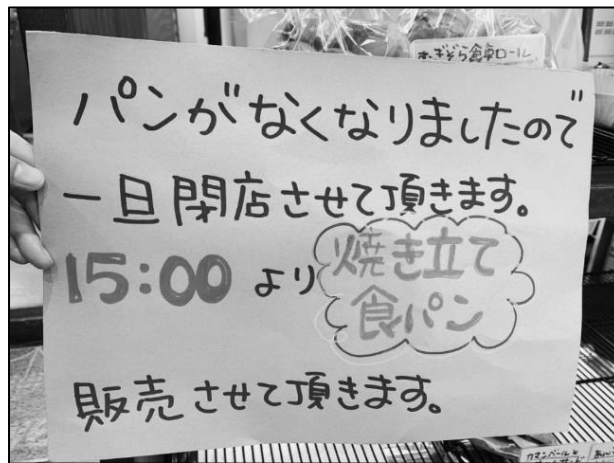 おおぞら食卓ロール
パンがなくなりましたので
一旦閉店させて頂きます。
15:00 より 焼き立て
食パン
販売させて頂きます。
カマンベールと